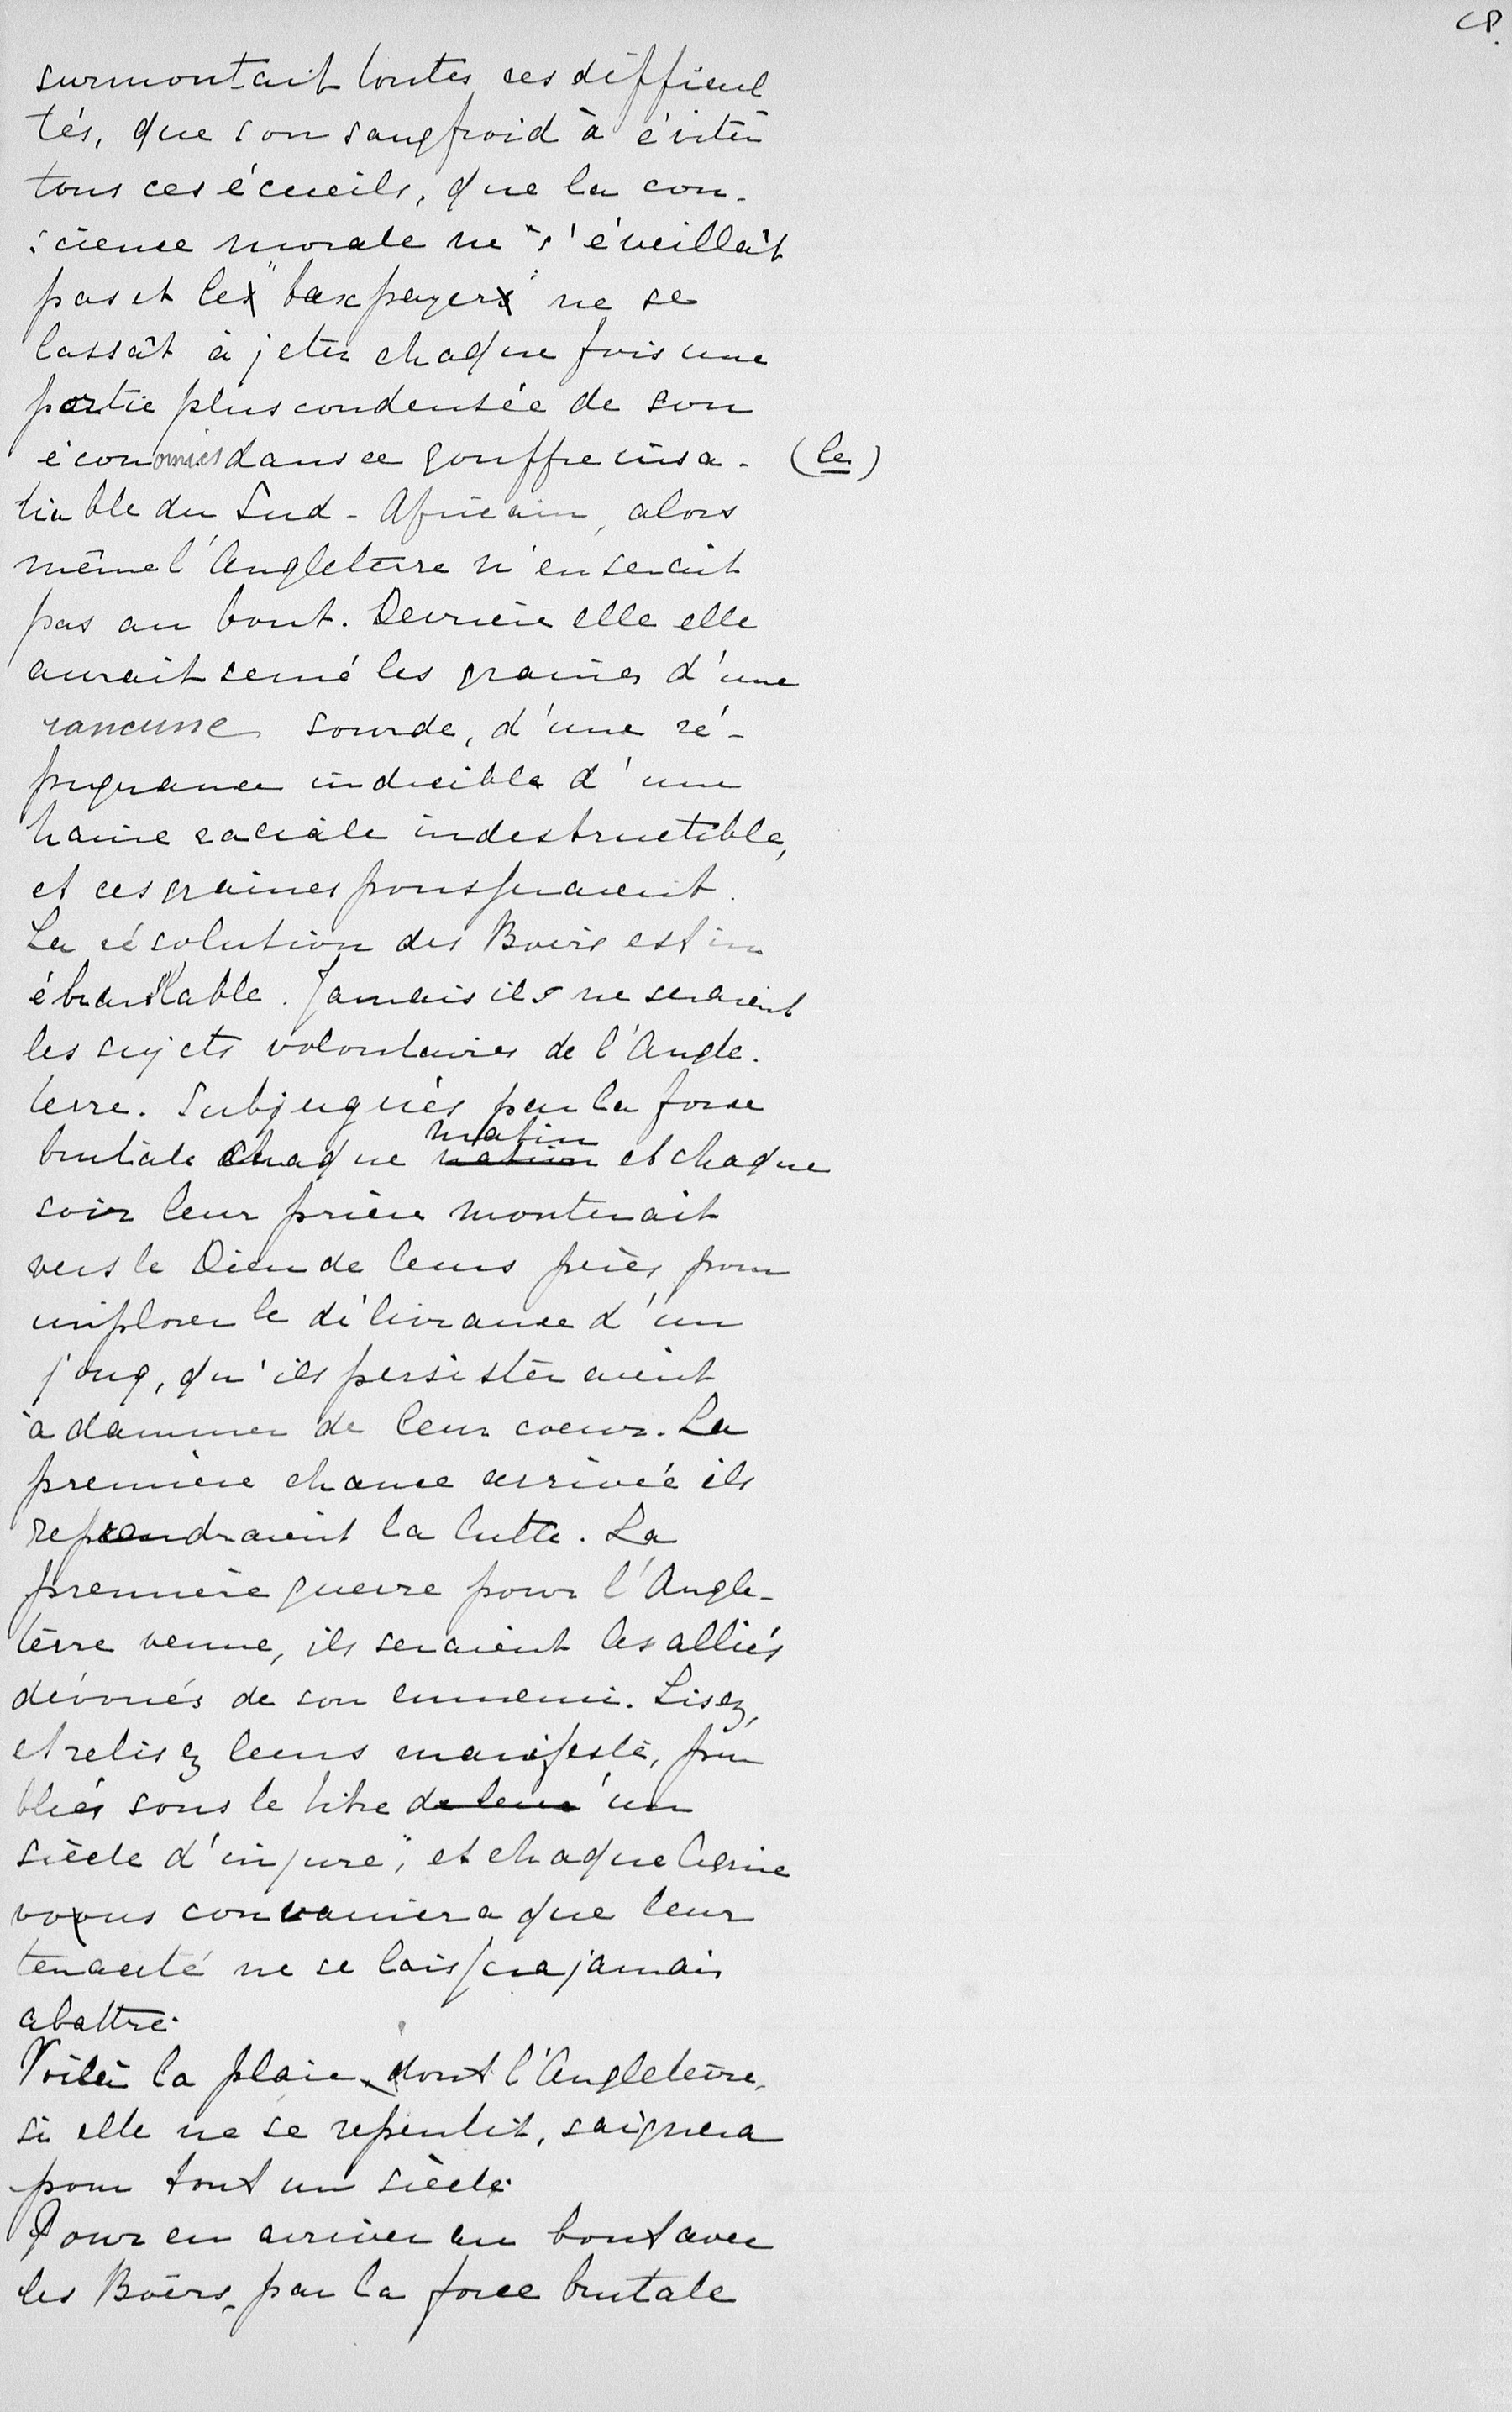 48.
surmontait toutes ces difficul
tés, que son sangfroid à évité
tous ces écueils, que la con-
science morale ne s'éveillât
pas et le "taxpayer" ne se
lassât à jeter chaque fois une
partie plus condensée de son
économies dans ce gouffre insa- (le)
tiable du Sud-Africain, alors
même l'Angleterre n'en serait
pas au bout. Derrière elle elle
aurait semé les graines d'une
rancune sourde, d'une ré-
pugnance indicible d'une
haine raciale indestructible,
et ces graines pousseraient.
La résolution des Boërs est in
ébranlable. Jamais ils ne seraient
les sujets volontaires de l'Angle-
terre. Subjugués par la force
brutale chaque matin et chaque
soir leur prière monterait
vers le Dieu de leurs pères pour
implorer le délivrance d'un
joug, qu'ils persisteraient
à damner de leur coeur. La
première chance arrivée ils
reprendraient la lutte. La
première guerre pour l'Angle-
terre venue, ils seraient les alliés
dévoués de son ennemi. Lisez,
et relisez leurs manifeste, pu
bliés sous le titre de leur un
siècle d'injure", et chaque ligne
vous convaincra que leur
tenacité ne se laissera jamais
abattre.
Voilà la plaie, dont l'Angleterre,
si elle ne se repentit, saignera
pour tout un siècle.
Pour en arriver au bout avec
les Boërs, par la force brutale